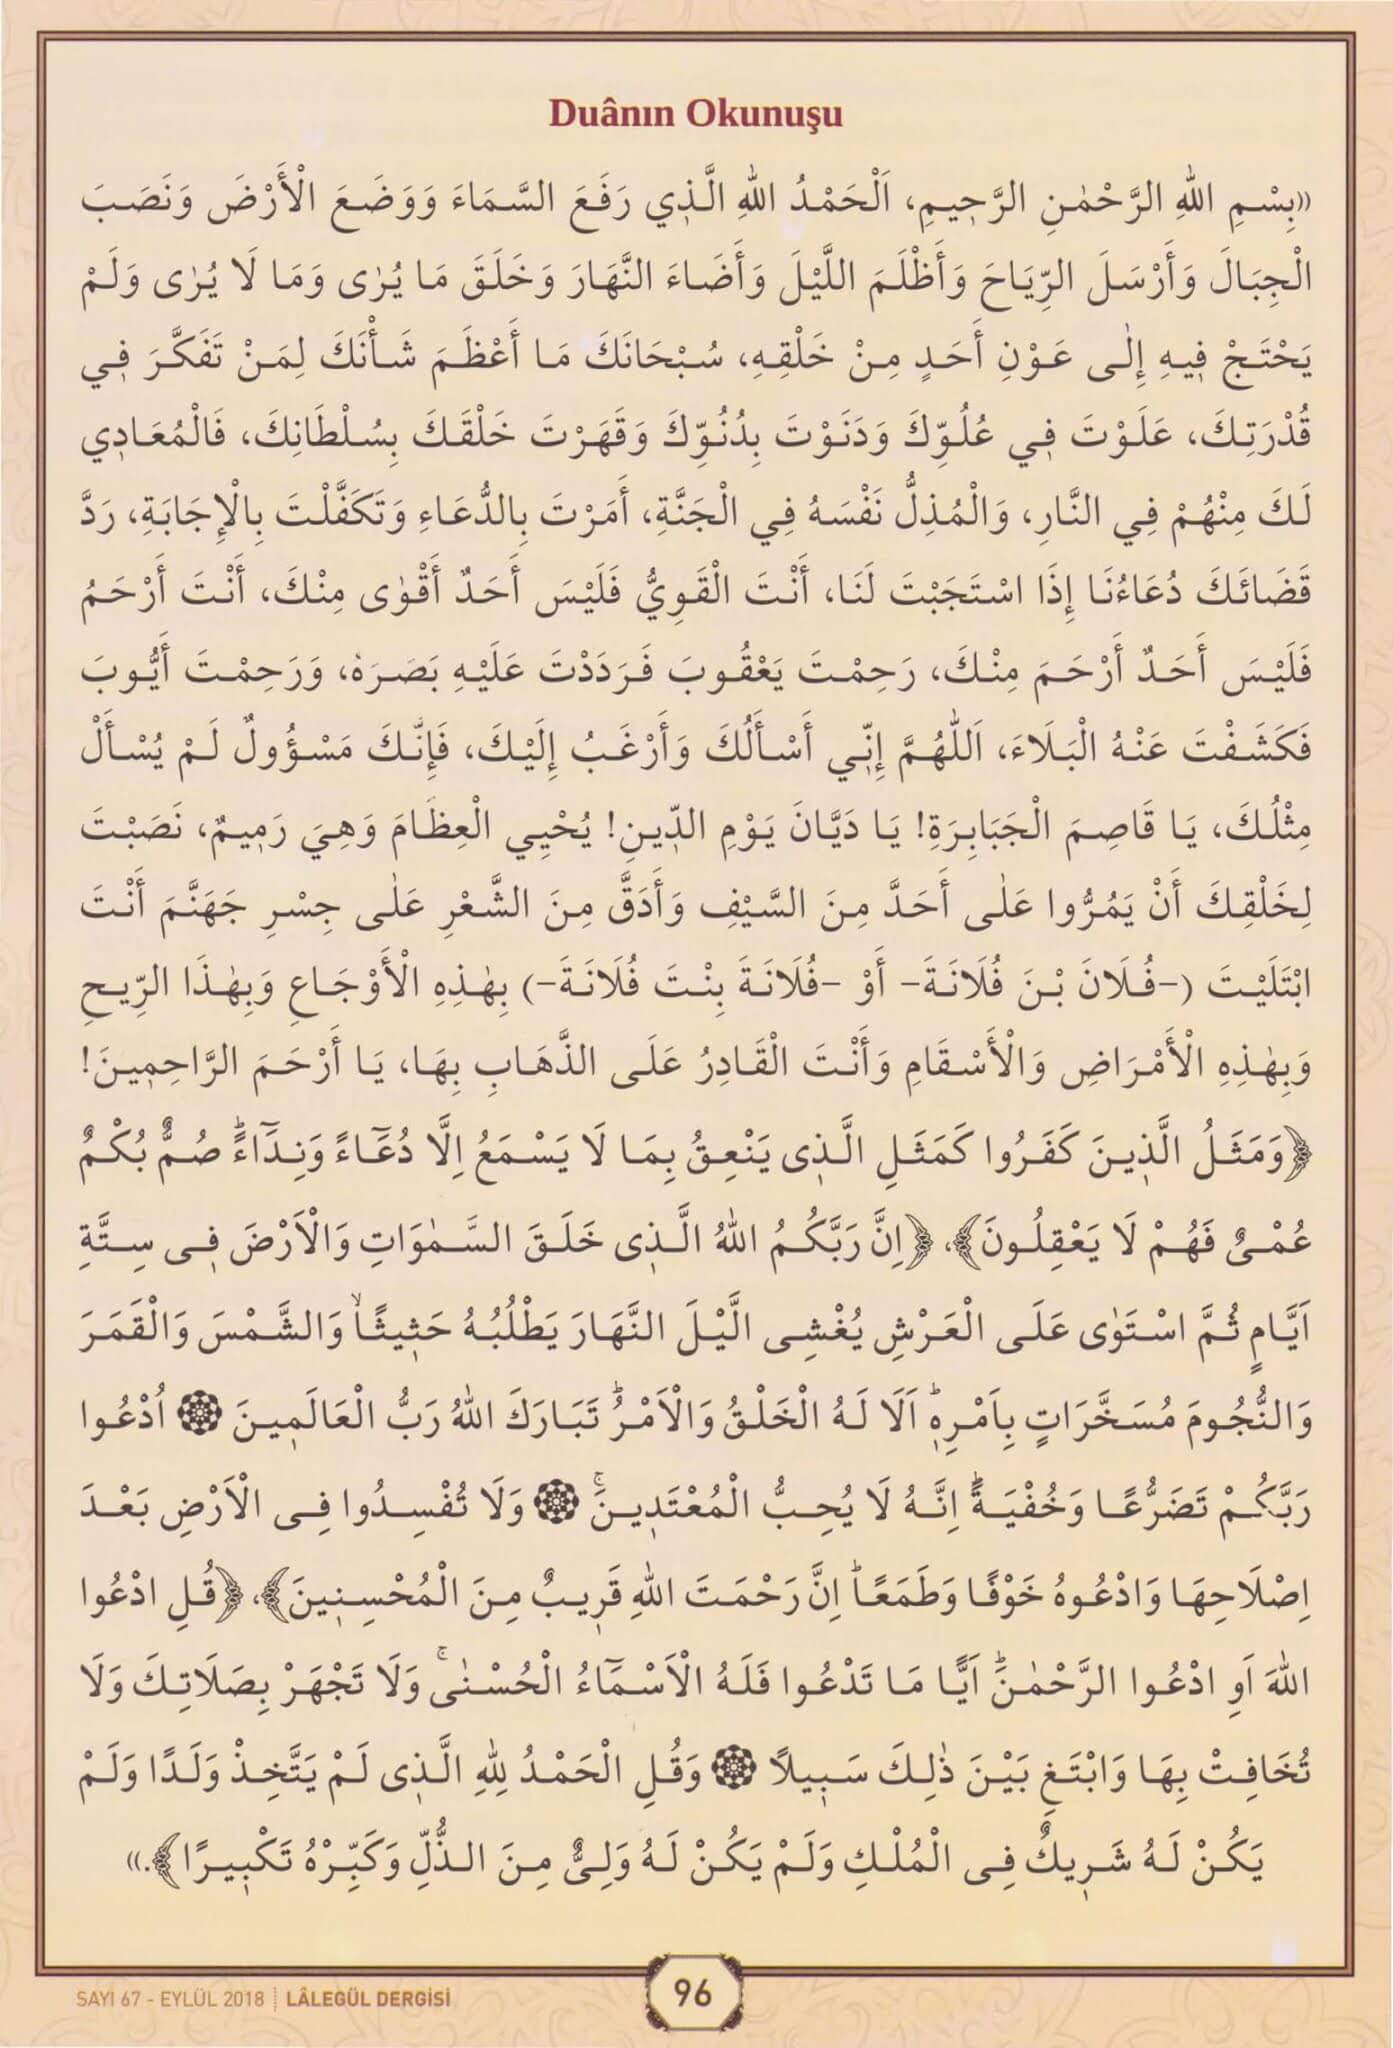 Duânın Okunuşu
«بِسْمِ اللهِ الرَّحْمٰنِ الرَّحِيمِ، اَلْحَمْدُ اللهِ الَّذِي رَفَعَ السَّمَاءَ وَوَضَعَ الْأَرْضَ وَنَصَبَ
الْجِبَالَ وَأَرْسَلَ الرِّيَاحَ وَأَظْلَمَ اللَّيْلَ وَأَضَاءَ النَّهَارَ وَخَلَقَ مَا يُرٰى وَمَا لَا يُرٰى وَلَمْ
يَحْتَجْ فِيهِ إِلٰى عَوْنِ أَحَدٍ مِنْ خَلْقِهِ، سُبْحَانَكَ مَا أَعْظَمَ شَأْنَكَ لِمَنْ تَفَكَّرَ فِي
قُدْرَتِكَ، عَلَوْتَ فِي عُلُوِّكَ وَدَنَوْتَ بِدُنُوِّكَ وَقَهَرْتَ خَلْقَكَ بِسُلْطَانِكَ، فَالْمُعَادِي
لَكَ مِنْهُمْ فِي النَّارِ، وَالْمُذِلُّ نَفْسَهُ فِي الْجَنَّةِ، أَمَرْتَ بِالدُّعَاءِ وَتَكَفَّلْتَ بِالْإِجَابَةِ، رَدَّ
قَضَائَكَ دُعَاءُنَا إِذَا اسْتَجَبْتَ لَنَا، أَنْتَ الْقَوِيُّ فَلَيْسَ أَحَدٌ أَقْوٰى مِنْكَ، أَنْتَ أَرْحَمُ
فَلَيْسَ أَحَدٌ أَرْحَمَ مِنْكَ، رَحِمْتَ يَعْقُوبَ فَرَدَدْتَ عَلَيْهِ بَصَرَهُ، وَرَحِمْتَ أَيُّوبَ
فَكَشَفْتَ عَنْهُ الْبَلَاءَ، اَللّٰهُمَّ إِنِّي أَسْأَلُكَ وَأَرْغَبُ إِلَيْكَ، فَإِنَّكَ مَسْؤُولٌ لَمْ يُسْأَلْ
مِثْلُكَ، يَا قَاصِمَ الْجَبَابِرَةِ! يَا دَيَّانَ يَوْمِ الدِّينِ! يُحْيِي الْعِظَامَ وَهِيَ رَمِيمٌ، نَصَبْتَ
لِخَلْقِكَ أَنْ يَمُرُّوا عَلٰى أَحَدَّ مِنَ السَّيْفِ وَأَدَقَّ مِنَ الشَّعْرِ عَلٰى جِسْرِ جَهَنَّمَ أَنْتَ
ابْتَلَيْتَ (-فُلَانَ بْنَ فُلَانَةَ- أَوْ -فُلَانَةَ بِنْتَ فُلَانَةَ-) بِهٰذِهِ الْأَوْجَاعِ وَبِهٰذَا الرِّيحِ
وَبِهٰذِهِ الْأَمْرَاضِ وَالْأَسْقَامِ وَأَنْتَ الْقَادِرُ عَلَى الذَّهَابِ بِهَا، يَا أَرْحَمَ الرَّاحِمِينَ!
﴿وَمَثَلُ الَّذِينَ كَفَرُوا كَمَثَلِ الَّذِى يَنْعِقُ بِمَا لَا يَسْمَعُ اِلَّا دُعَٓاءً وَنِدَٓاءًۜ صُمٌّ بُكْمٌ
عُمْىٌ فَهُمْ لَا يَعْقِلُونَ﴾، ﴿اِنَّ رَبَّكُمُ اللهُ الَّذِى خَلَقَ السَّمٰوَاتِ وَالْاَرْضَ فِى سِتَّةِ
اَيَّامٍ ثُمَّ اسْتَوٰى عَلَى الْعَرْشِ يُغْشِى الَّيْلَ النَّهَارَ يَطْلُبُهُ حَثِيثًاۙ وَالشَّمْسَ وَالْقَمَرَ
وَالنُّجُومَ مُسَخَّرَاتٍ بِاَمْرِهِۜ اَلَا لَهُ الْخَلْقُ وَالْاَمْرُۜ تَبَارَكَ اللهُ رَبُّ الْعَالَمِينَ ۝ اُدْعُوا
رَبَّكُمْ تَضَرُّعًا وَخُفْيَةًۜ اِنَّهُ لَا يُحِبُّ الْمُعْتَدِينَۚ ۝ وَلَا تُفْسِدُوا فِى الْاَرْضِ بَعْدَ
اِصْلَاحِهَا وَادْعُوهُ خَوْفًا وَطَمَعًاۜ اِنَّ رَحْمَتَ اللهِ قَرِيبٌ مِنَ الْمُحْسِنِينَ﴾، ﴿قُلِ ادْعُوا
اللهَ اَوِ ادْعُوا الرَّحْمٰنَۜ اَيًّا مَا تَدْعُوا فَلَهُ الْاَسْمَٓاءُ الْحُسْنٰىۚ وَلَا تَجْهَرْ بِصَلَاتِكَ وَلَا
تُخَافِتْ بِهَا وَابْتَغِ بَيْنَ ذٰلِكَ سَبِيلًا ۝ وَقُلِ الْحَمْدُ لِلهِ الَّذِى لَمْ يَتَّخِذْ وَلَدًا وَلَمْ
يَكُنْ لَهُ شَرِيكٌ فِى الْمُلْكِ وَلَمْ يَكُنْ لَهُ وَلِىٌّ مِنَ الذُّلِّ وَكَبِّرْهُ تَكْبِيرًا﴾.»
SAYI 67 - EYLÜL 2018 | LÂLEGÜL DERGİSİ
96